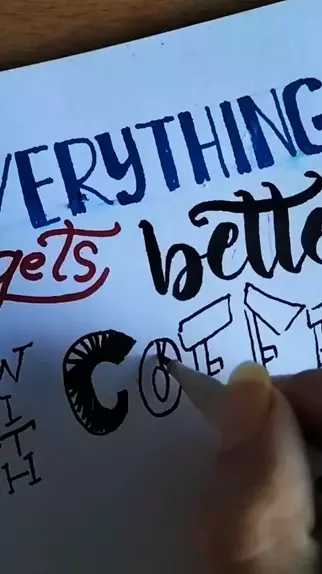 VERYTHING
gets bette
WITH COFF